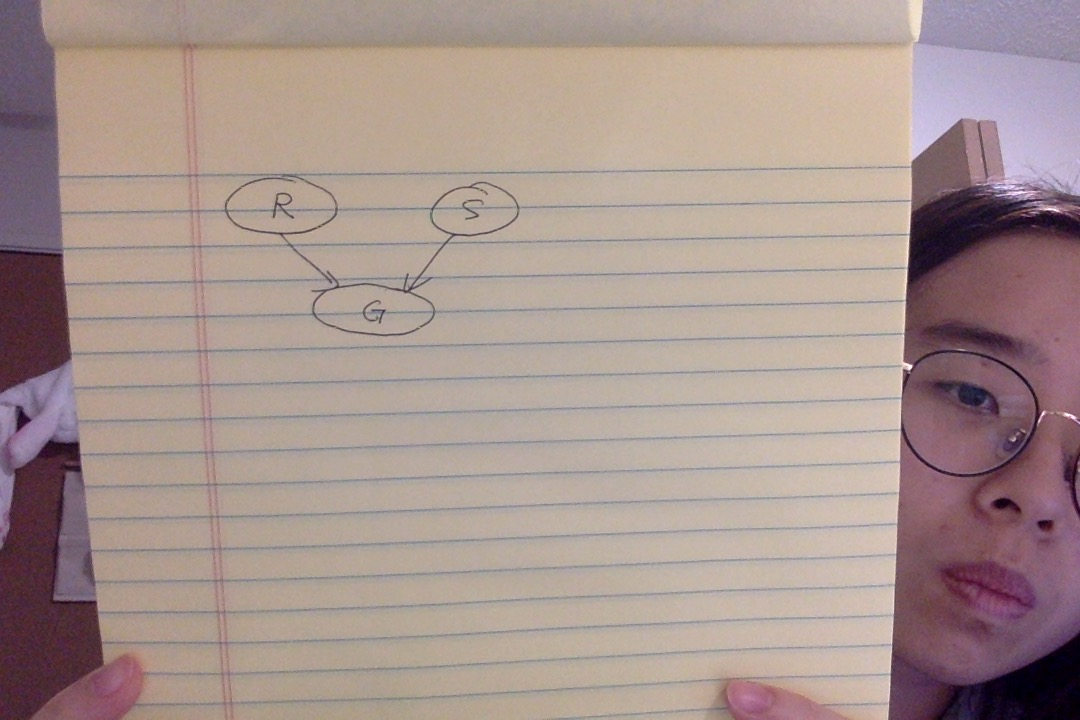 R S
G